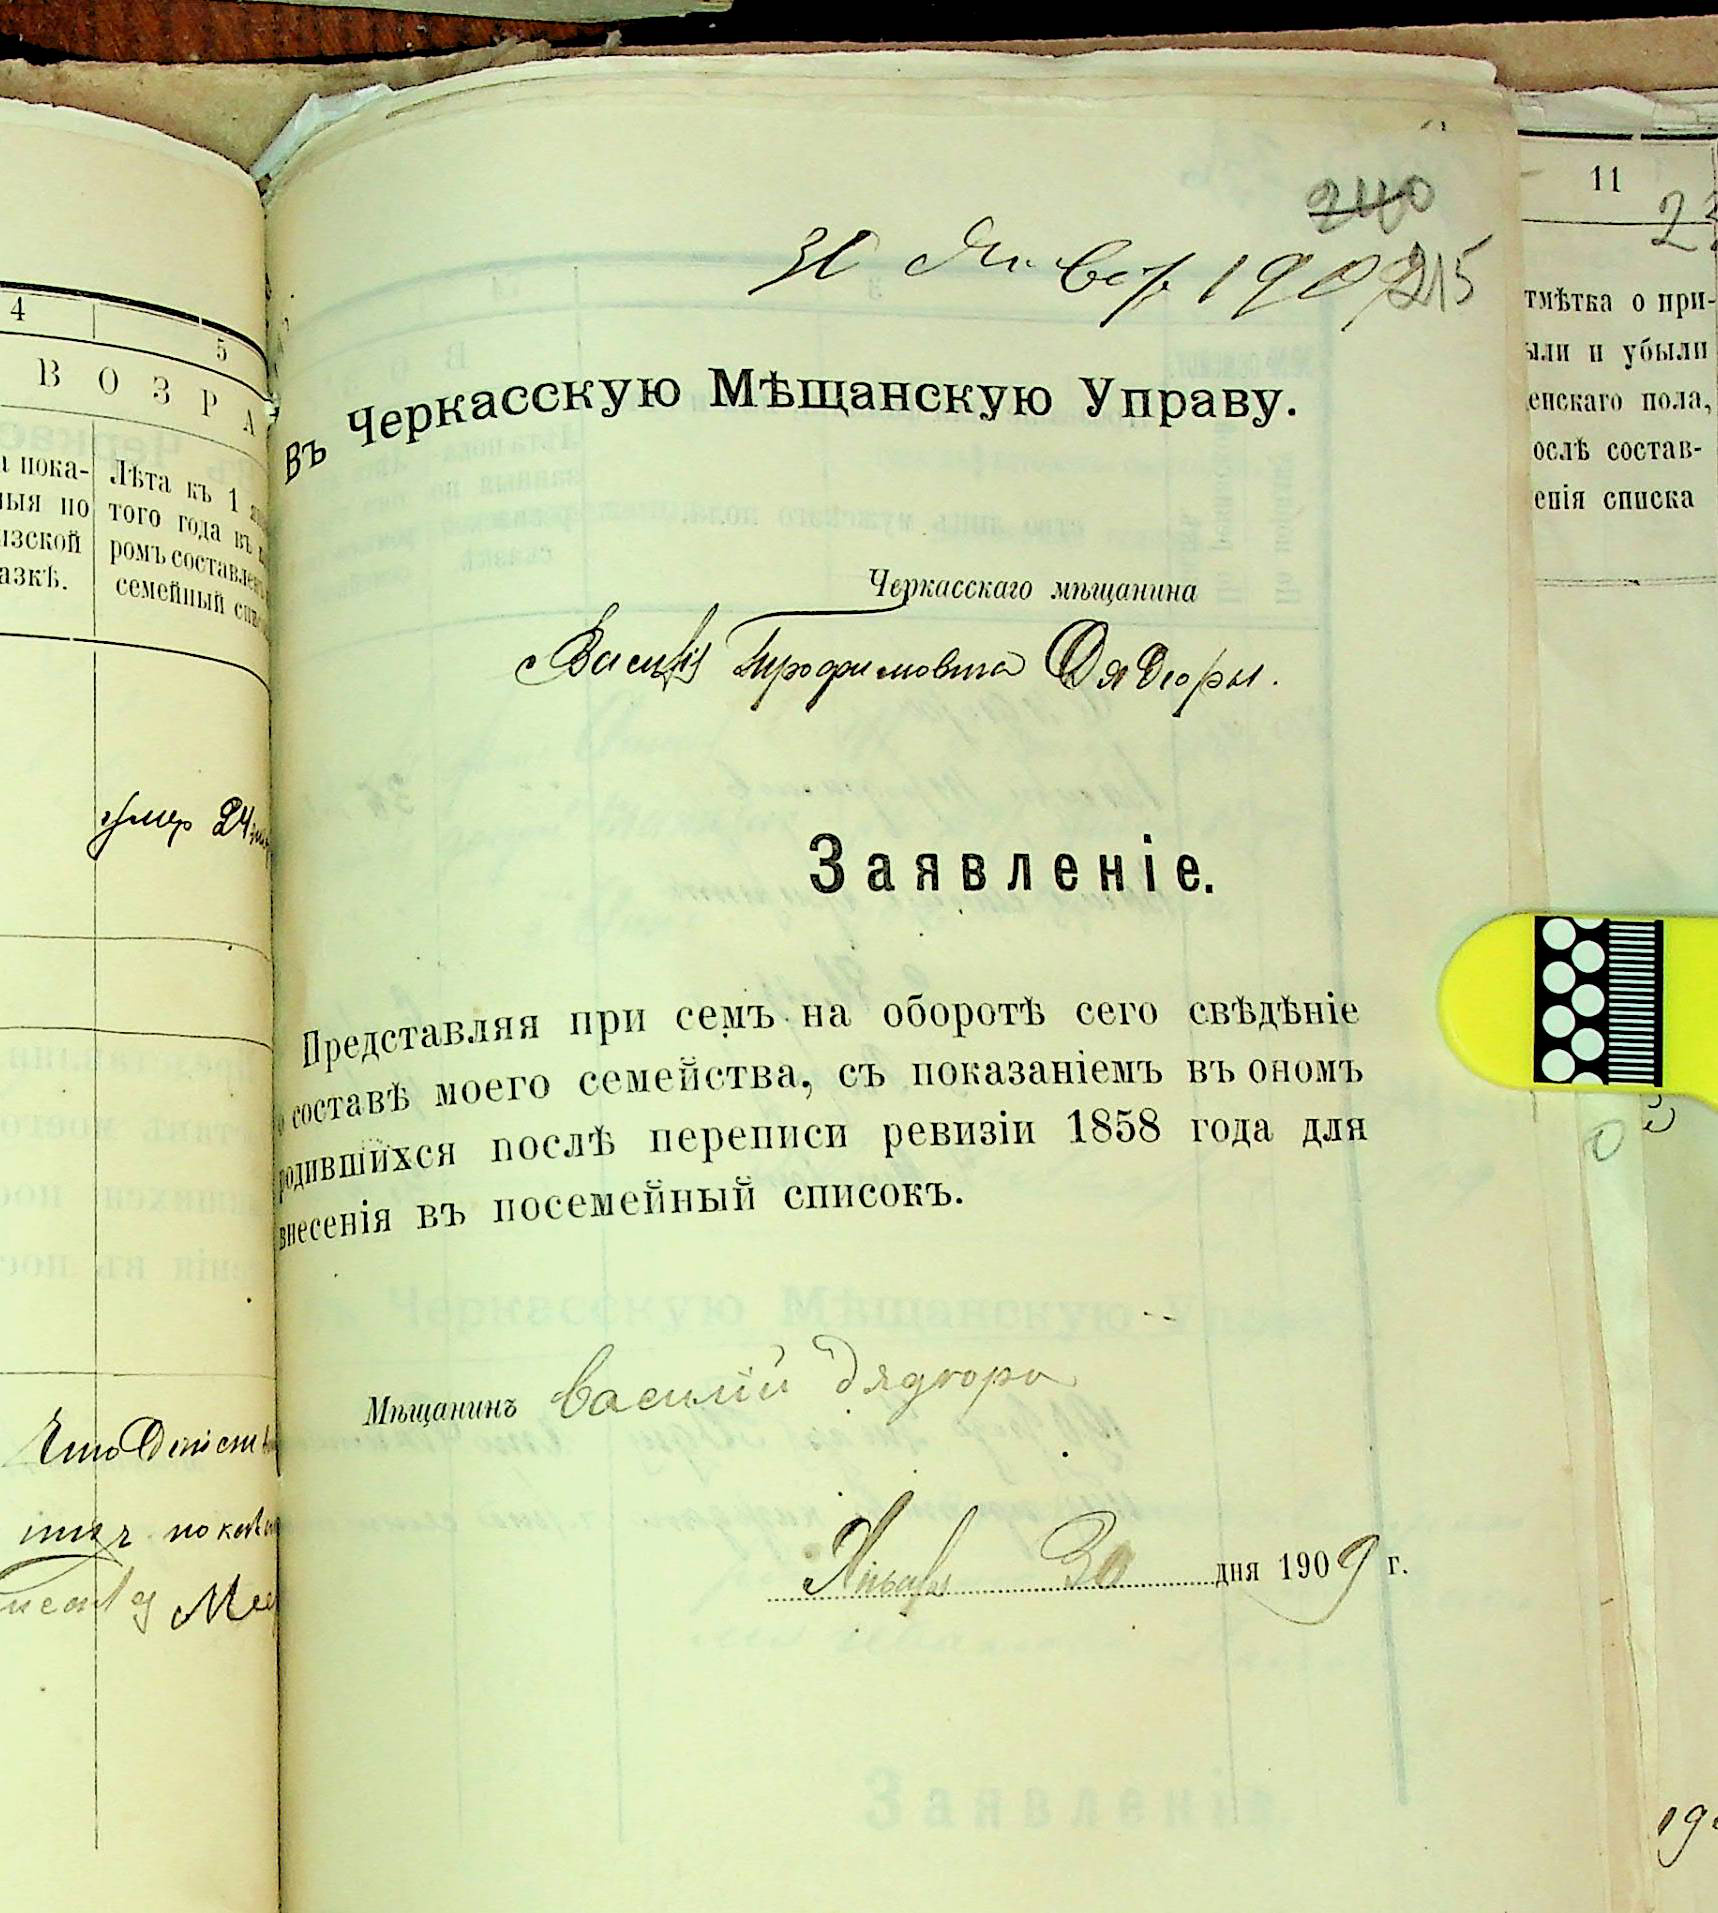 4
5
ВОЗРА
а пока-
ныя по
изской
азкѣ.
Лѣта къ 1
того года въ
ромъ составлен
семейный спи
умер 24
240
30 Январ. 190
215
Въ Черкасскую Мѣщанскую Управу.
Черкасскаго мѣщанина
Василія Трофимовича Дядюры.
Заявленіе.
Представляя при семъ на оборотѣ сего свѣдѣніе
о составѣ моего семейства, съ показаніемъ въ ономъ
родившихся послѣ переписи ревизіи 1858 года для
внесенія въ посемейный списокъ.
Мѣщанинъ Василій Дядюра
Января 30 дня 1909 г.
11
тмѣтка о при-
ыли и убыли
енскаго пола,
ослѣ состав-
енія списка